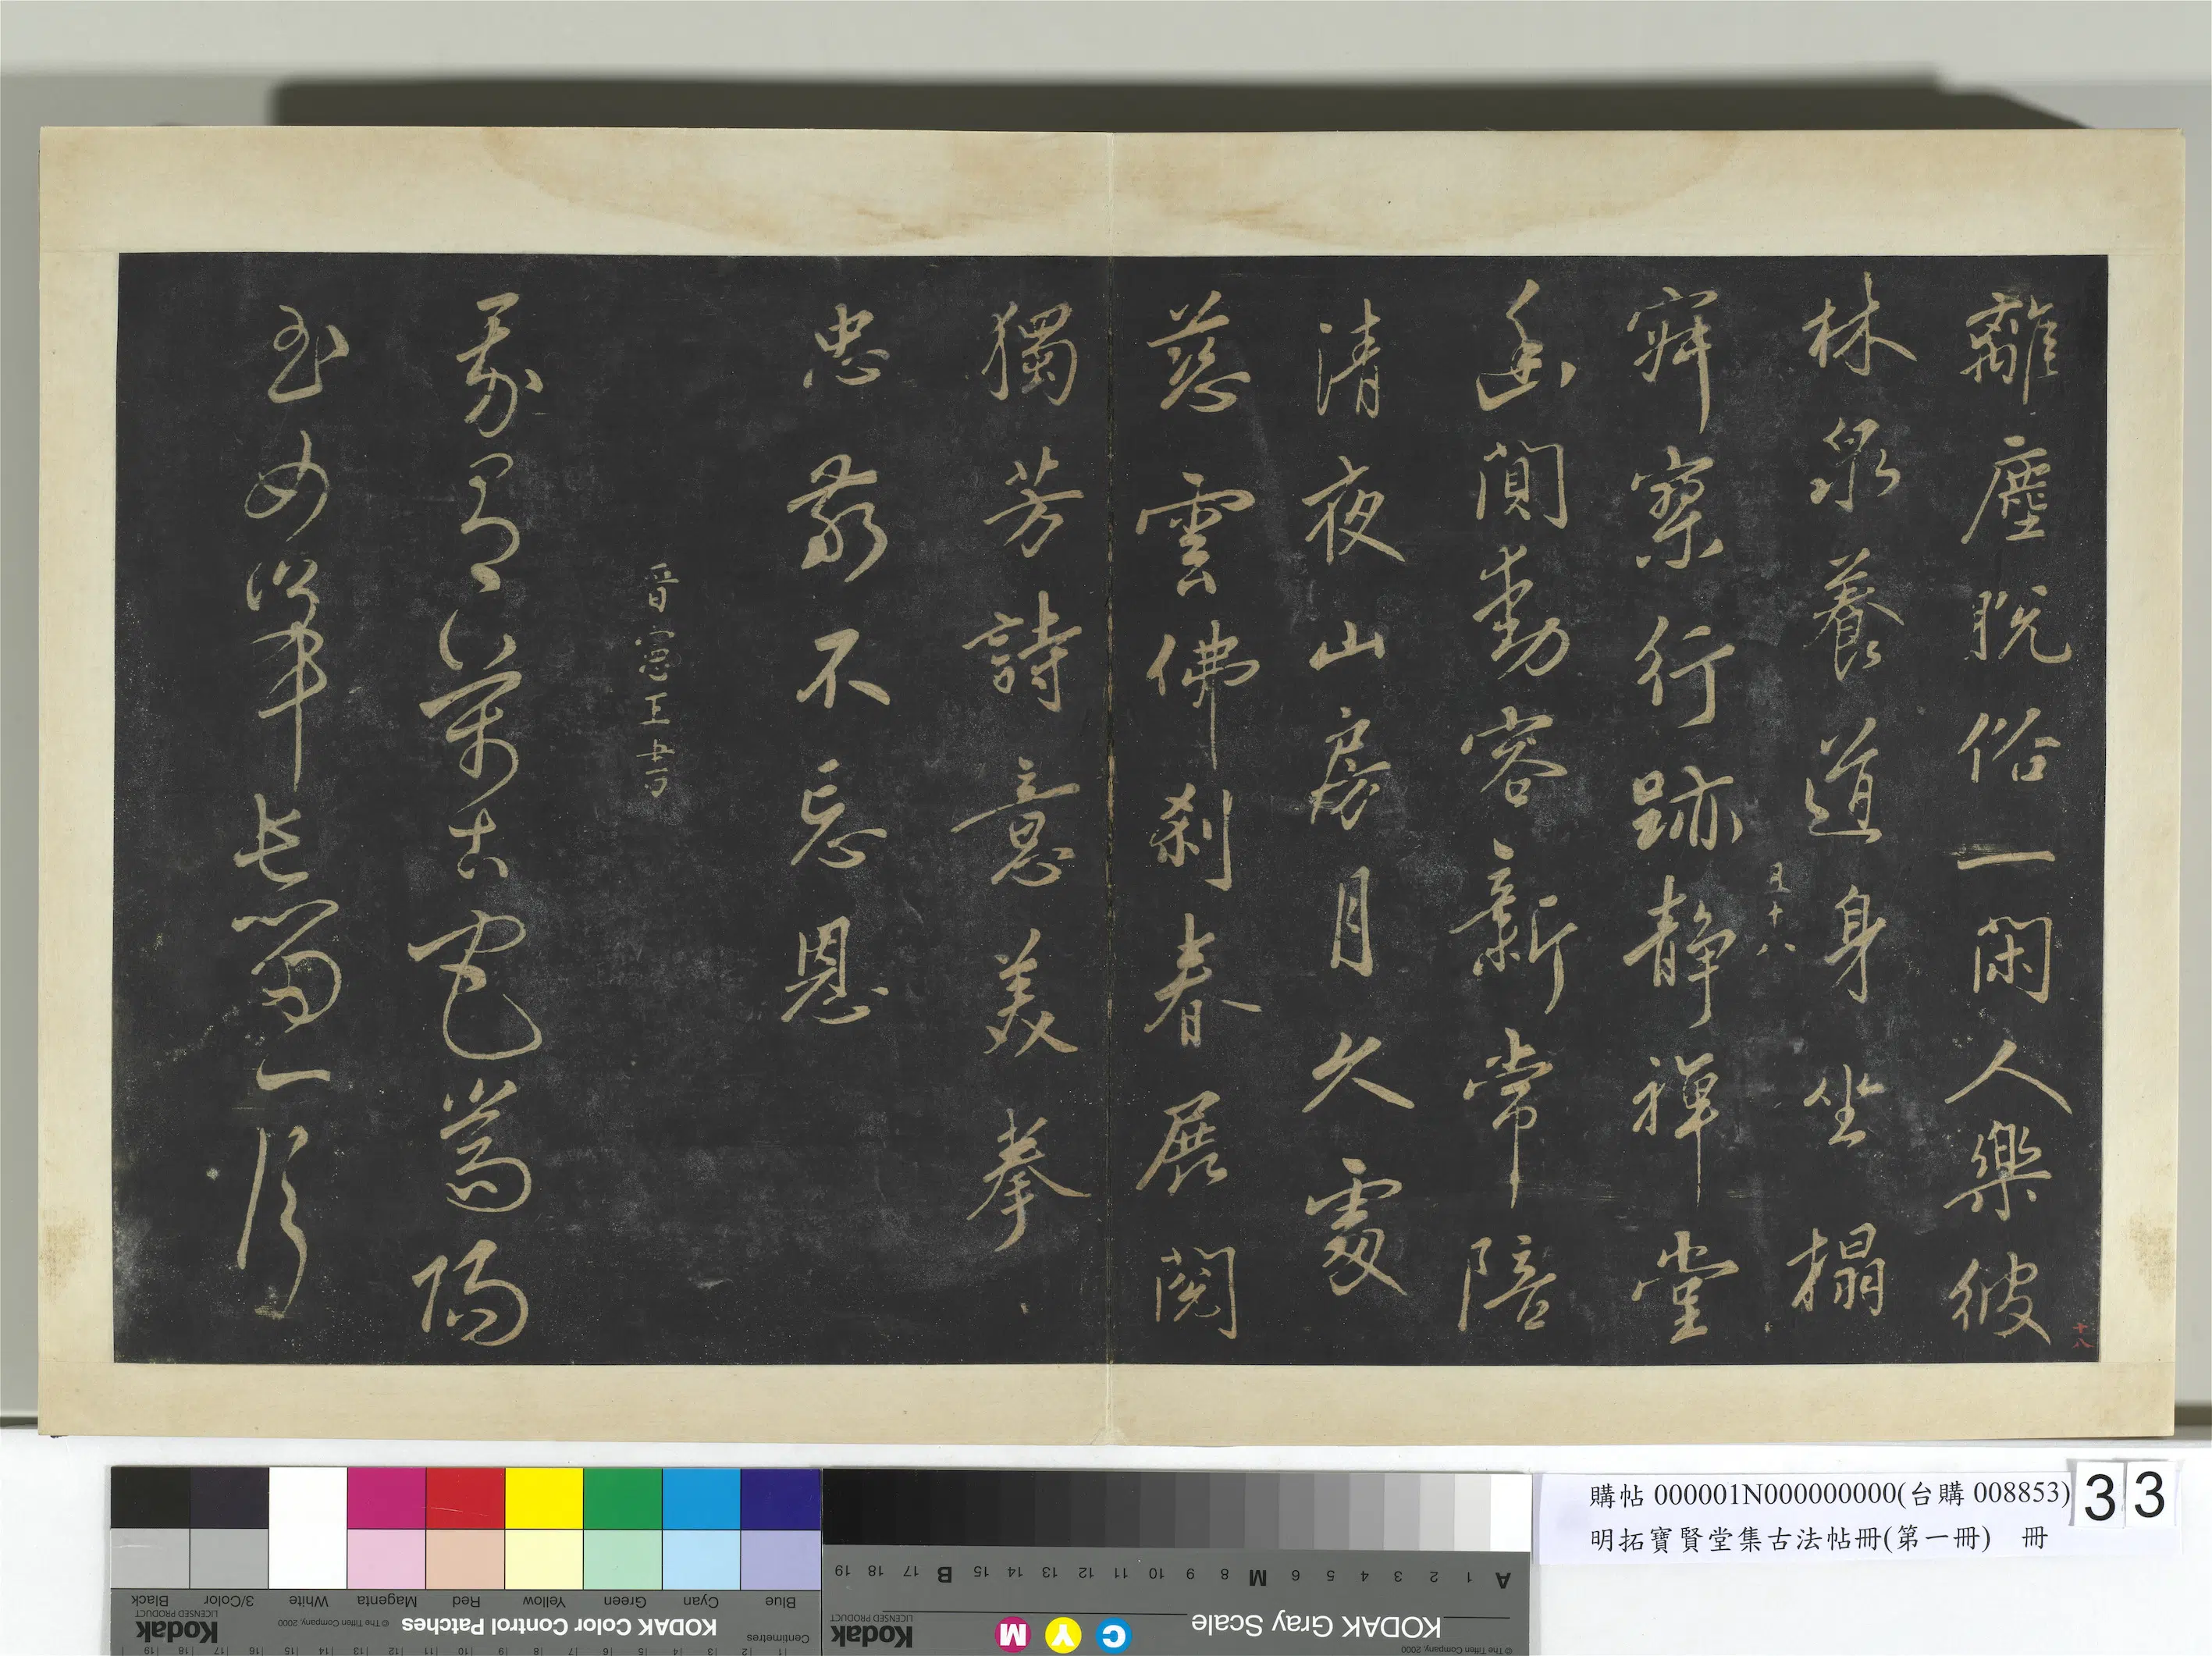 離塵脫俗一閑人樂彼
林泉養道身坐榻
五十八
寂寥行跡靜禪堂
幽閒動容新常陪
清夜山房月久處
慈雲佛剎春展閱
獨芳詩意美拳
忠敬不忘恩
晉憲王書
萬古
長留一片
十八
購帖 000001N000000000(台購 008853)
明拓寶賢堂集古法帖冊(第一冊) 冊
33
Black 3/Color White Magenta Red Yellow Green Cyan Blue
Kodak LICENSED PRODUCT © The Tiffen Company, 2000 KODAK Color Control Patches Centimetres
A 1 2 3 4 5 6 M 8 9 10 11 12 13 14 15 B 17 18 19
KODAK Gray Scale C Y M Kodak LICENSED PRODUCT
© The Tiffen Company, 2000